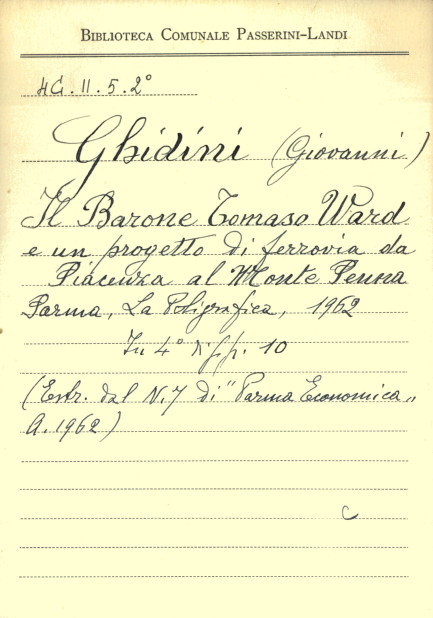 BIBLIOTECA COMUNALE PASSERINI-LANDI
4G.II.5.2°
Ghidini (Giovanni)
Il Barone Tomaso Ward
e un progetto di ferrovia da
Piacenza al Monte Penna
Parma, La Poligrafica, 1962
In 4° pp. 10
(Estr. dal N.7 di "Parma Economica"
A. 1962)
C